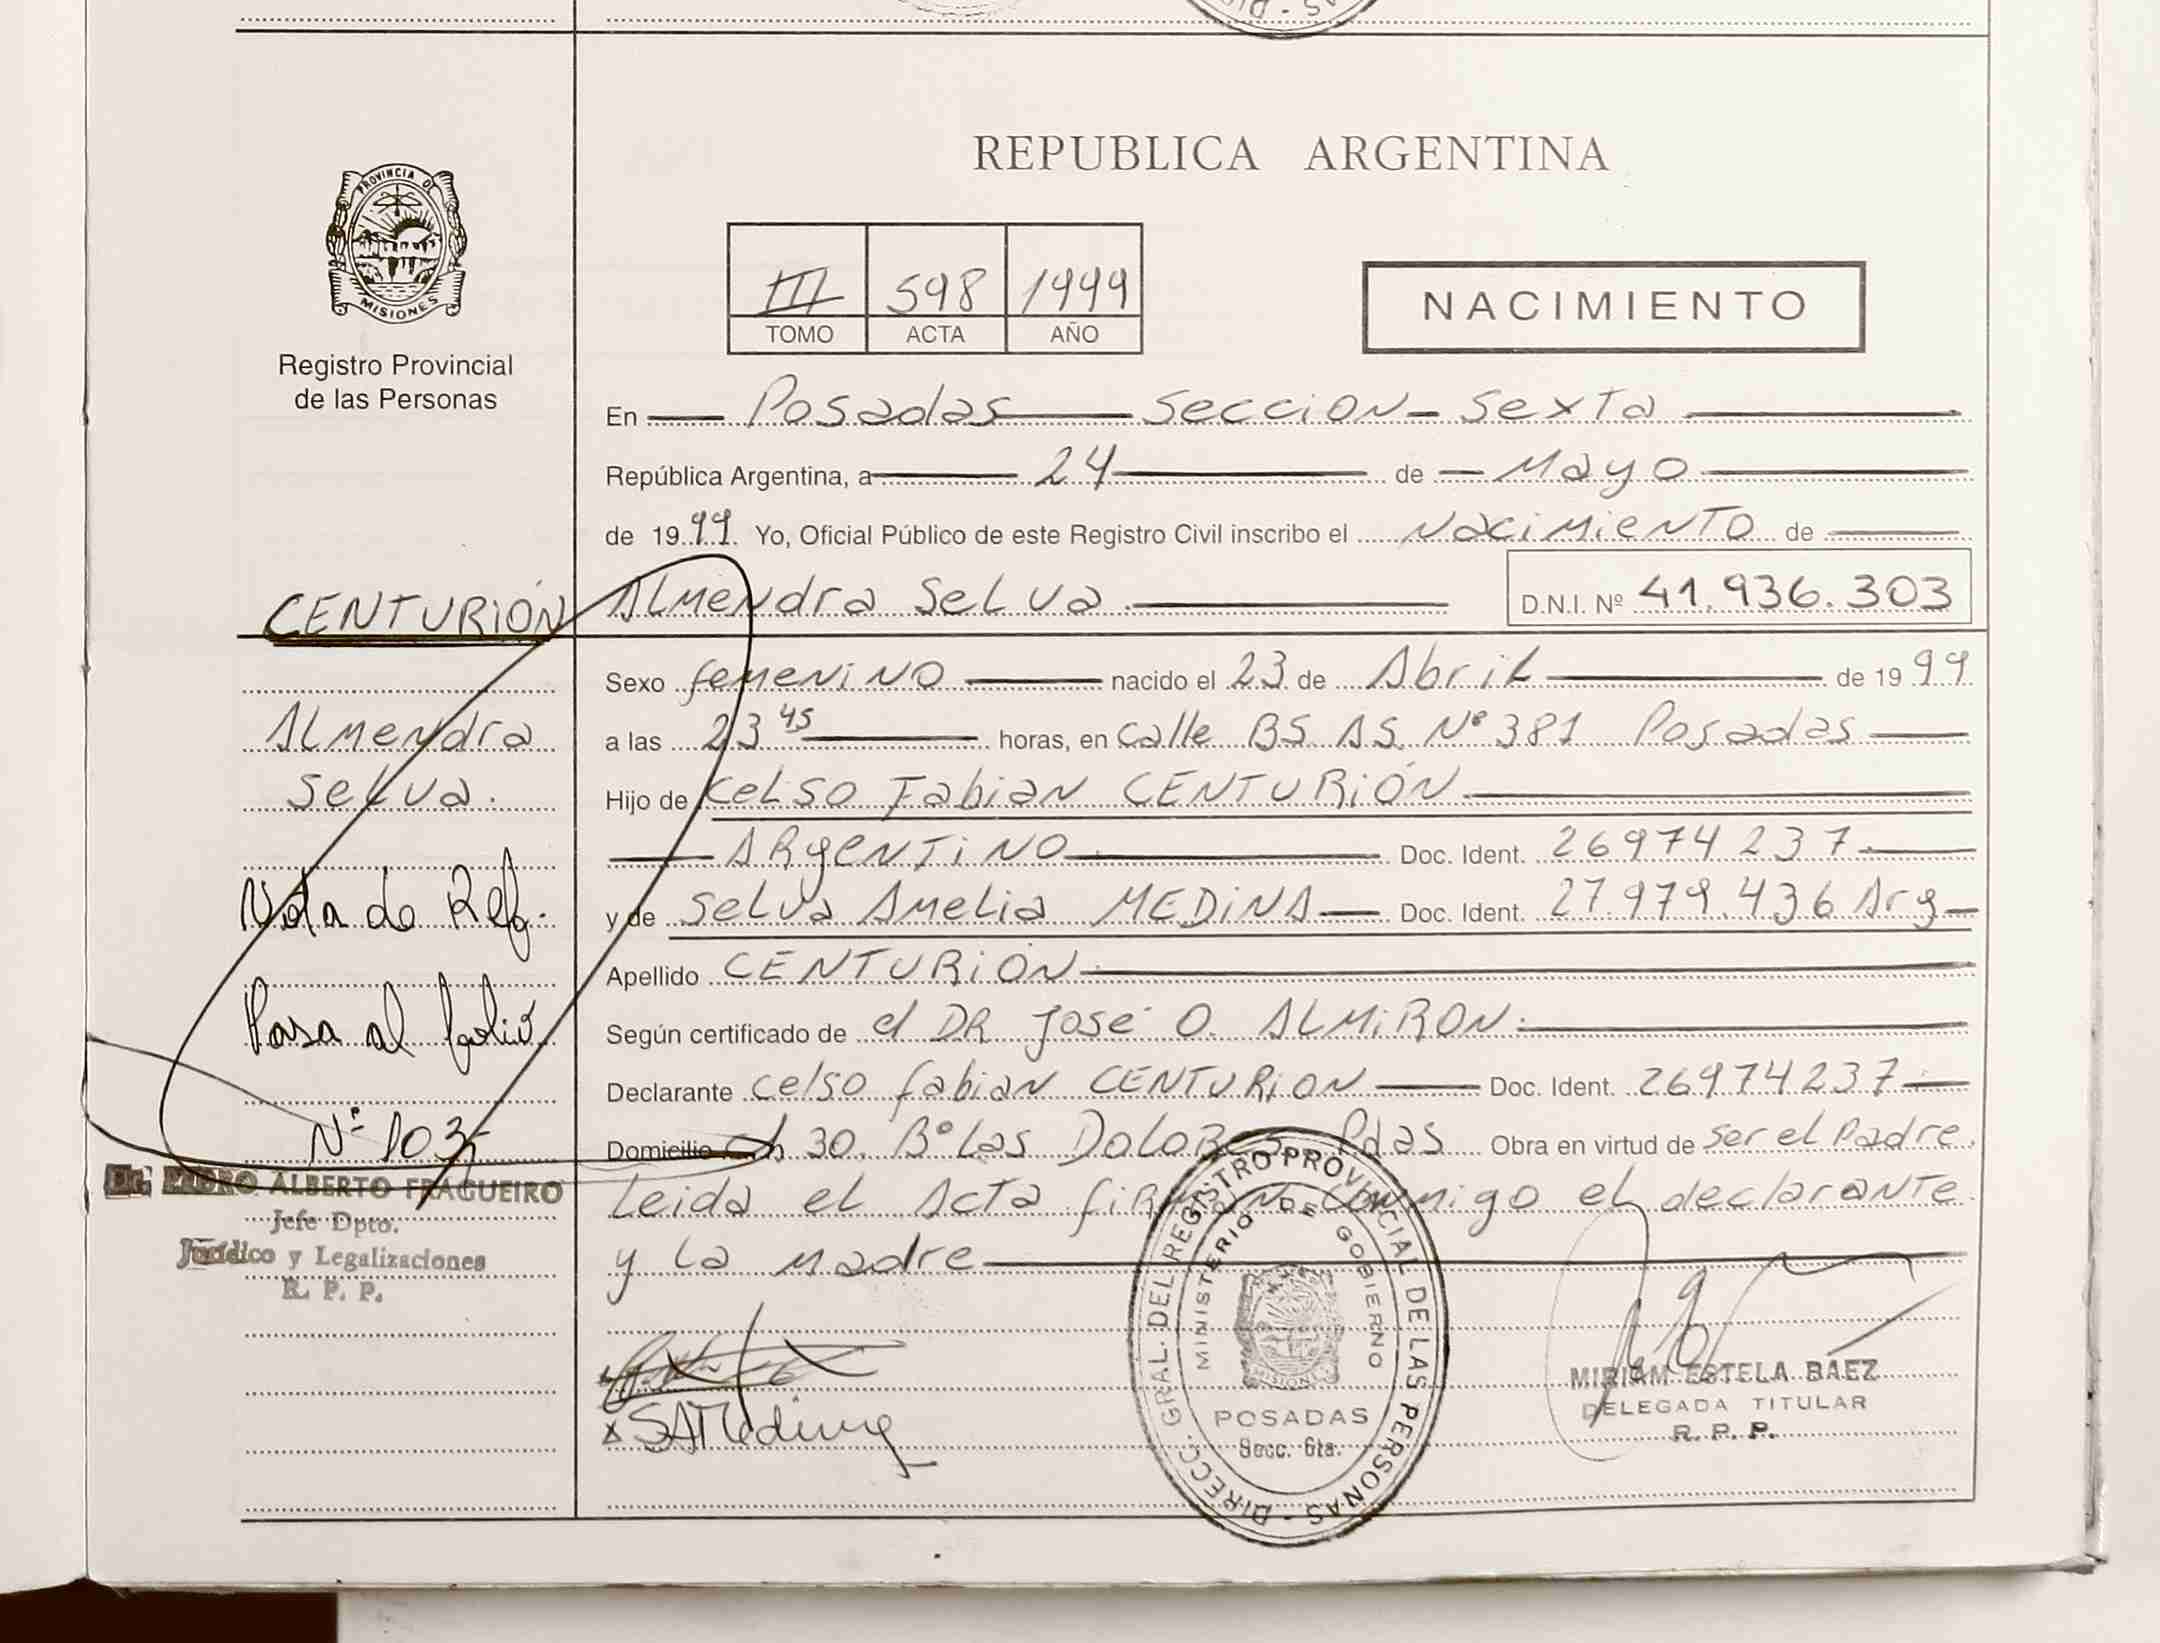 REPUBLICA ARGENTINA
PROVINCIA DE
MISIONES
Registro Provincial
de las Personas
III 598 1999
TOMO ACTA AÑO
NACIMIENTO
En Posadas Seccion Sexta
República Argentina, a 24 de Mayo
de 1999. Yo, Oficial Público de este Registro Civil inscribo el Nacimiento de
Almendra Selva D.N.I. Nº 41.936.303
Sexo femenino nacido el 23 de Abril de 1999
a las 23 45 horas, en calle BS. AS. Nº 381 Posadas
Hijo de Celso Fabian CENTURIÓN
ARgentino Doc. Ident. 26974237
y de Selva Amelia MEDINA Doc. Ident. 27.979.436 Arg
Apellido CENTURIÓN
Según certificado de el DR José O. ALMIRON.
Declarante Celso fabian CENTURION Doc. Ident. 26974237
Domicilio ch 30. Bº Las Dolores Pdas Obra en virtud de ser el Padre.
Leida el Acta firman conmigo el declarante
y la madre
CENTURIÓN
Almendra
Selva.
Nota de Ref.
Pasa al folio
Nº 103
Dr. PEDRO ALBERTO FRAGUEIRO
Jefe Dpto.
Jurídico y Legalizaciones
R. P. P.
x SAMedina
DIRECC. GRAL. DEL REGISTRO PROVINCIAL DE LAS PERSONAS -
MINISTERIO DE GOBIERNO
MISIONES
POSADAS
Secc. 6ta.
MIRIAM ESTELA BAEZ
DELEGADA TITULAR
R. P. P.